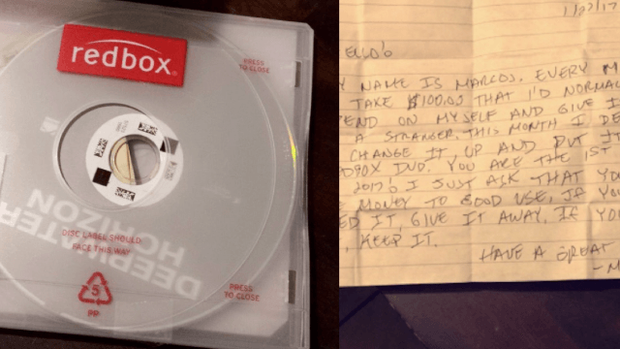 redbox.
PRESS
TO CLOSE
DISC LABEL SHOULD
FACE THIS WAY
DEEPWATER
HORIZON
PRESS
TO CLOSE
5
PP
NAME IS MARCOS. EVERY M
TAKE $100.00 THAT I'D NORMAL
END ON MYSELF AND GIVE I
A STRANGER. THIS MONTH I DE
CHANGE IT UP AND PUT IT
DUO. YOU ARE THE 1ST
I JUST ASK THAT YO
MONEY TO GOOD USE, IF YO
ED IT, GIVE IT AWAY, IF YOU
, KEEP IT.
HAVE A GREAT